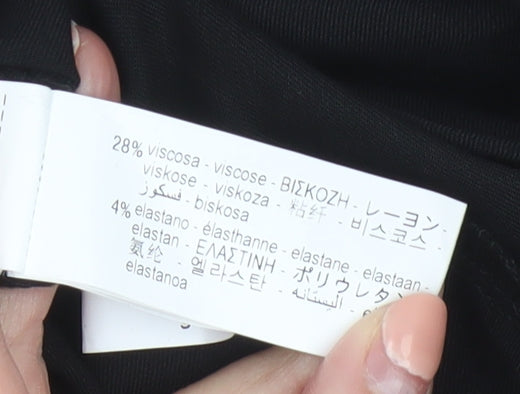 28% viscosa - viscose - ΒΙΣΚΟΖΗ - レーヨン -
viskose - viskoza - 粘纤 - 비스코스 -
فسكوز - biskosa
4% elastano - élasthanne - elastane - elastaan -
elastan - ΕΛΑΣΤΙΝΗ - ポリウレタン
氨纶 - 엘라스탄 - اليستانه -
elastanoa